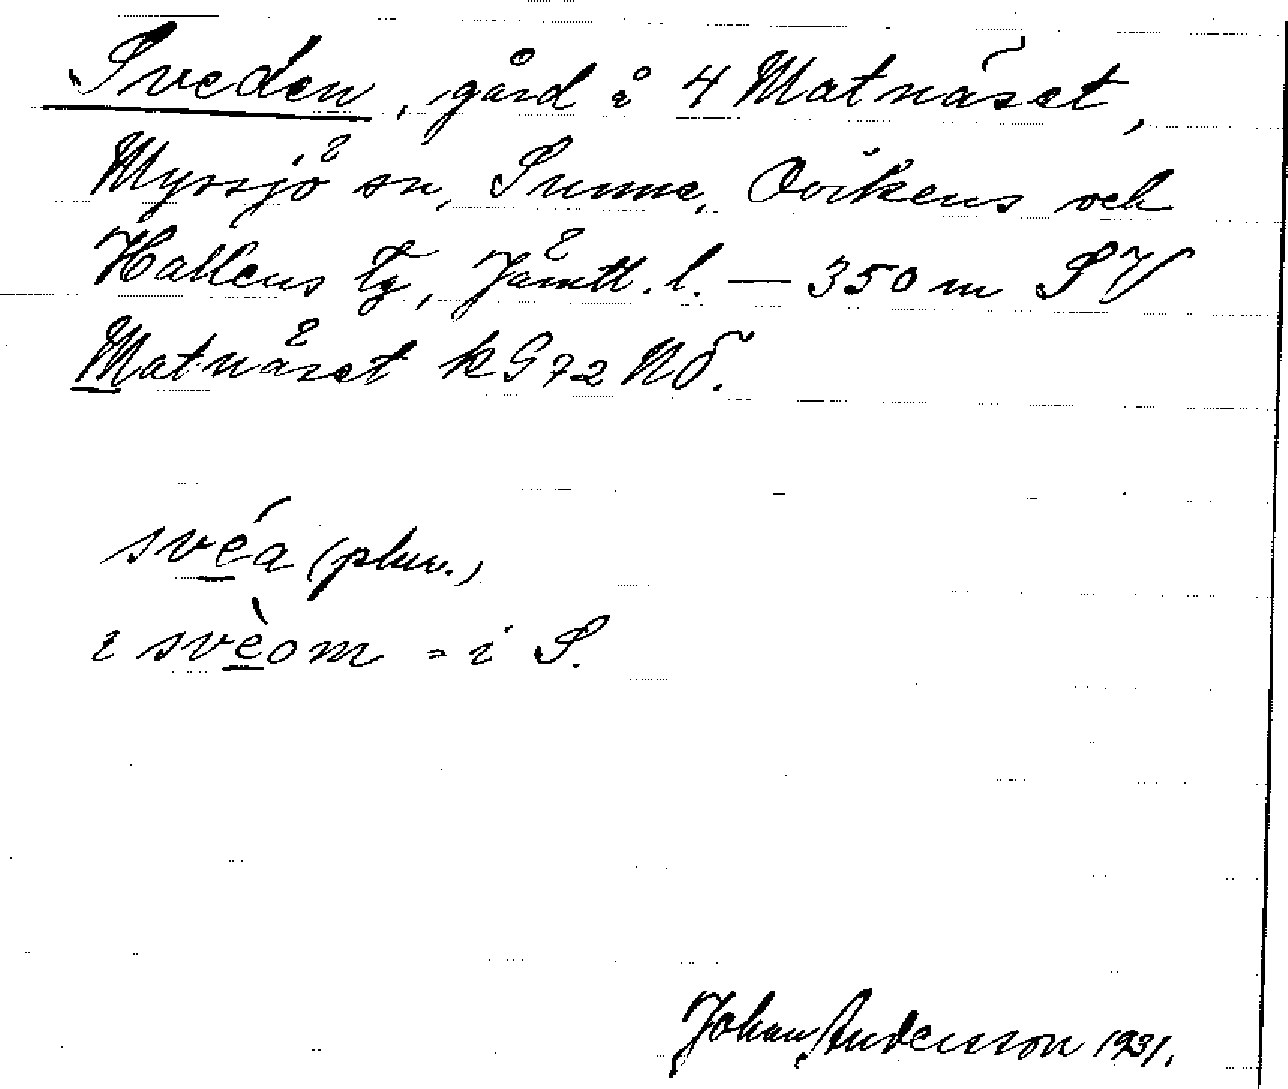 Sveden, gård i 4 Matnäset,
Myssjö sn, Sunne, Ovikens och
Hallens tg, Jämtl. l. — 350 m SV
Matnäset kG 72 NÖ.
svéa (plur.)
i svèom = i S.
Johan Andersson 1931.